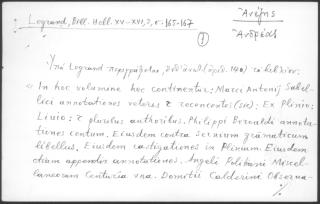 Legrand, Bibl. Hell. XV-XVI, 3, σ. 165-167
Ἀνέζης
Ἀνδρέας
1
Ὑπὸ Legrand περιγράφεται,
τὸ βιβλίον:
« In hoc volumine hoc continentur: Marci Antonij Sabel-
lici annotationes veteres & recenentes (sic): Ex Plinio:
Liuio: & pluribus authoribus. Philippi Beroaldi annota-
tiones centum. Eiusdem contra seruium grammaticum
libellus. Eiusdem castigationes in Plinium. Eiusdem
etiam appendix annotationes. Angeli Politiani Miscel-
laneorum Centuria vna. Domitii Calderini Obserua-
./.